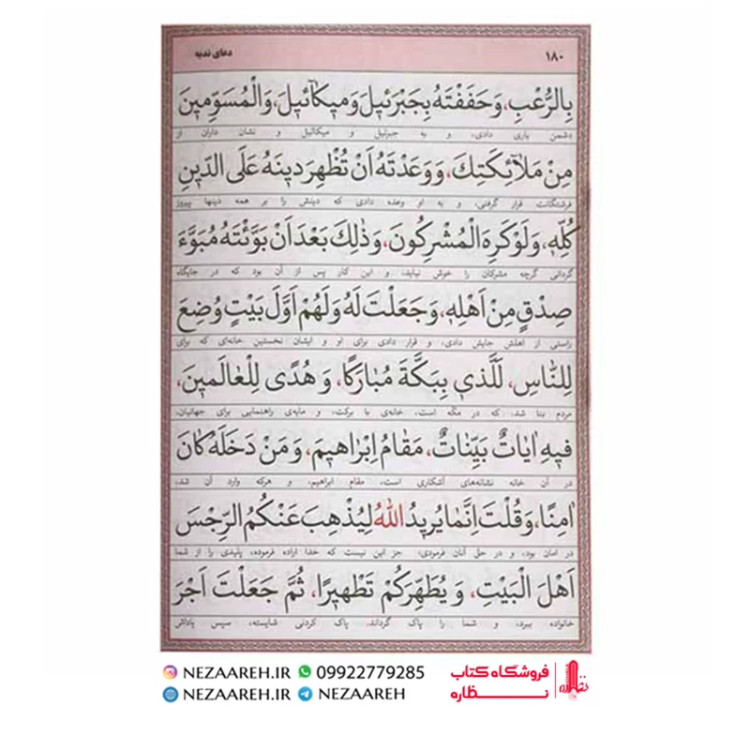 ۱۸۰
دعای ندبه
بِالرُّعْبِ، وَحَفَفْتَهُ بِجَبْرَئيلَ وَميكآئيلَ، وَالْمُسَوِّمينَ
دشمن یاری دادی، و به جبرئیل و میکائیل و نشان داران از
مِنْ مَلآئِكَتِكَ، وَوَعَدْتَهُ اَنْ تُظْهِرَ دينَهُ عَلَى الدّينِ
فرشتگانت قرار گرفتی، و به او وعده دادی که دینش را بر همه دینها پیروز
كُلِّهِ، وَلَوْكَرِهَ الْمُشْرِكُونَ، وَذٰلِكَ بَعْدَ اَنْ بَوَّئْتَهُ مُبَوَّءَ
گردانی گرچه مشرکان را خوش نیاید، و این کار پس از آن بود که در جایگاه
صِدْقٍ مِنْ اَهْلِهِ، وَجَعَلْتَ لَهُ وَلَهُمْ اَوَّلَ بَيْتٍ وُضِعَ
راستی از اهلش جایش دادی، و قرار دادی برای او و ایشان نخستین خانه‌ای که برای
لِلنّاسِ، لَلَّذى بِبَكَّةَ مُبارَكًا، وَ هُدًى لِلْعالَمينَ،
مردم بنا شد، که در مکّه است، خانه‌ی با برکت، و مایه‌ی راهنمایی برای جهانیان،
فيهِ اٰياتٌ بَيِّناتٌ، مَقامُ اِبْراهيمَ، وَ مَنْ دَخَلَهُ كانَ
در آن خانه نشانه‌های آشکاری است، مقام ابراهیم، و هرکه وارد آن شد،
اٰمِنًا، وَقُلْتَ اِنَّما يُريدُ اللّٰهُ لِيُذْهِبَ عَنْكُمُ الرِّجْسَ
در امان بود، و در حق آنان فرمودی: جز این نیست که خدا اراده فرموده، پلیدی را از شما
اَهْلَ الْبَيْتِ، وَ يُطَهِّرَكُمْ تَطْهيرًا، ثُمَّ جَعَلْتَ اَجْرَ
خانواده ببرد، و شما را پاک گرداند. پاک کردنی شایسته، سپس پاداش
NEZAAREH.IR 09922779285
NEZAAREH.IR NEZAAREH
فروشگاه کتاب
نظاره